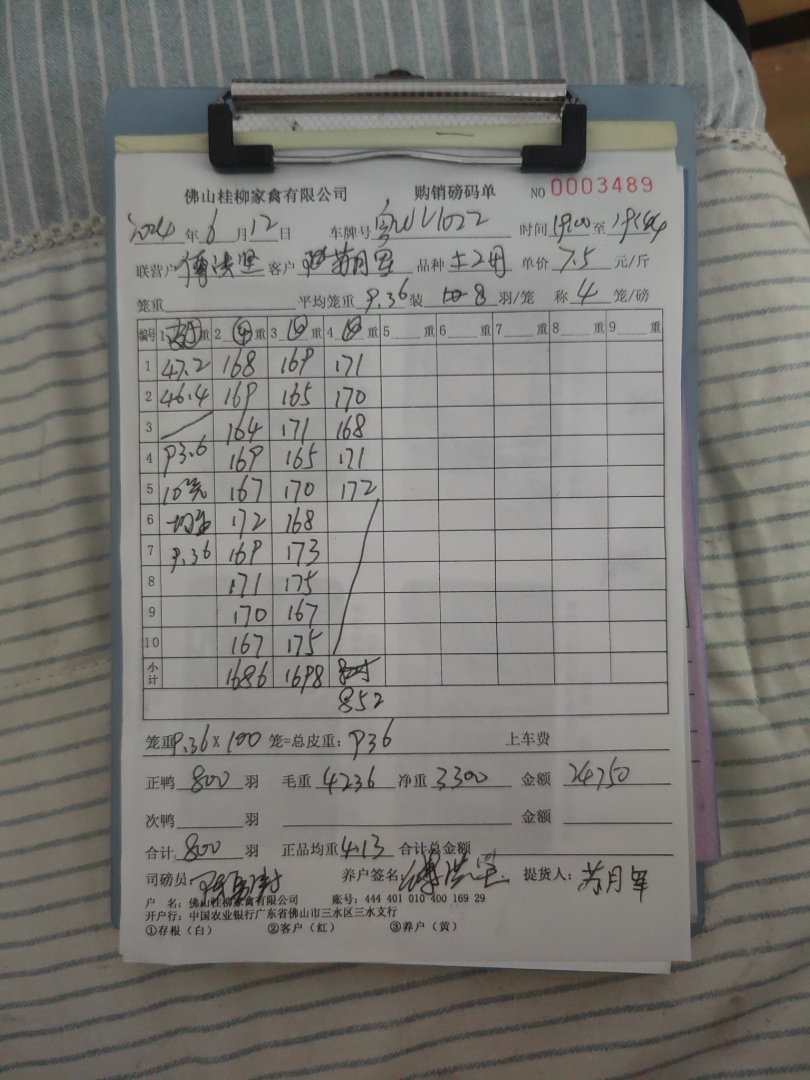 佛山桂柳家禽有限公司 购销磅码单 NO 0003489
2024年6月12日 车牌号 时间19:00至19:54
联营户傅洪坚 客户 苏月军 品种 土2 单价7.5元/斤
笼重 平均笼重9.36装8羽/笼 称4笼/磅
编号 1 皮重 2 ④重 3 ⑭重 4 重 5 重 6 重 7 重 8 重 9 重
1 47.2 168 169 171
2 46.4 169 165 170
3 164 171 168
4 93.6 169 165 171
5 10笼 167 170 172
6 均重 172 168
7 9.36 169 173
8 171 175
9 170 167
10 167 175
小计 1686 1698
852
笼重9.36×100笼=总皮重:936 上车费
正鸭800羽 毛重4236净重3300 金额24750
次鸭 羽 金额
合计800羽 正品均重4.13 合计总金额
司磅员 养户签名:傅洪坚 提货人:苏月军
户 名:佛山桂柳家禽有限公司 账号:444 401 010 400 169 29
开户行:中国农业银行广东省佛山市三水区三水支行
①存根(白) ②客户(红) ③养户(黄)